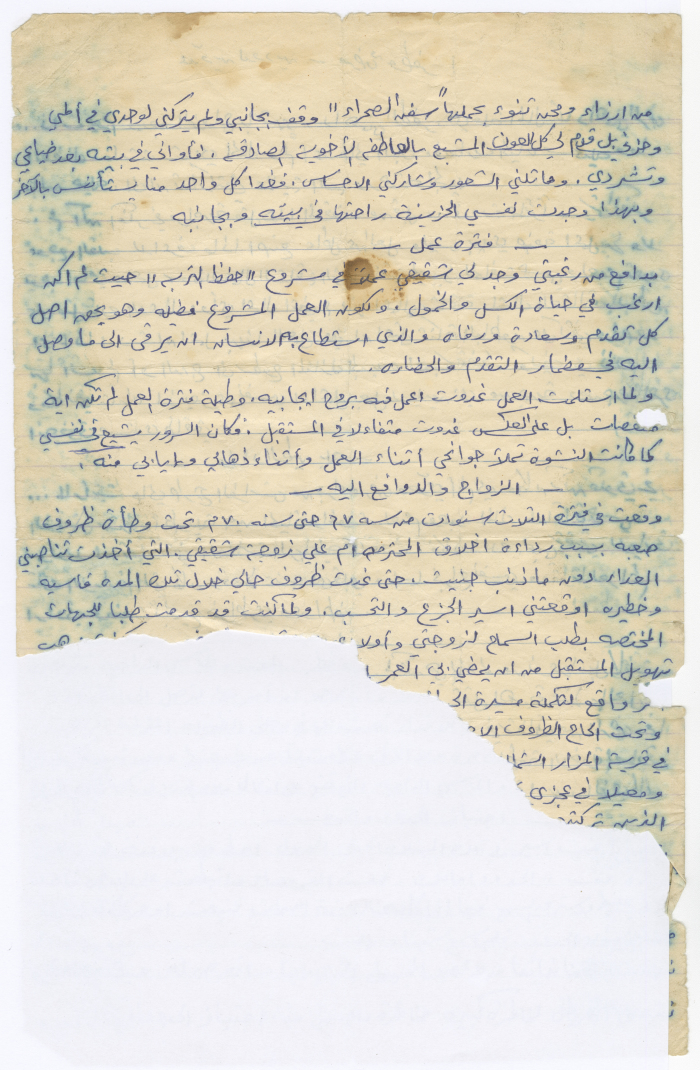 من ارزاء ومحن تنوء بحملها "سفن الصحراء" وقف بجانبي ولم يتركني لوحدي في ألمي
وحزني بل قدم لي كل العون المشبع بالعاطفه الأخوية الصادقه. فأواني في بيته بعد ضياعي
وتشردي. وماثلني الشعور وشاركني الاحساس. فغدا كل واحد منا يستأنس بالآخر
وبهذا وجدت نفسي الحزينة راحتها في بيته وبجانبه
— فترة عمل —
بدافع من رغبتي وجد لي شقيقي عملاً في مشروع "حفظ التربه" حيث لم اكن
ارغب في حياة الكسل والخمول. ولكون العمل المشروع فضيله وهو بحق اصل
كل تقدم وسعادة ورفاه والذي استطاع به الانسان ان يرقى الى ما وصل
اليه في مضمار التقدم والحضاره.
ولما استلمت العمل غدوت اعمل فيه بروح ايجابيه. وطيلة فترة العمل لم تكن اية
منغصات بل على العكس غدوت متفاءلا في المستقبل. فكان السرور يشيع في نفسي
كما كانت النشوة تملأ جوانحي أثناء العمل وأثناء ذهابي وايابي منه.
— الزواج والدوافع اليه —
وقعت في فترة الثلاث سنوات من سنه ٦٧ حتى سنه ٧٠م تحت وطأة ظروف
صعبه بسبب رداءة اخلاق المحترمه ام علي زوجة شقيقي. التي أخذت تناصبني
العداء دون ما ذنب جنيت. حتى غدت ظروف حالي خلال تلك المده قاسيه
وخطيره اوقعتني اسير الجزع والتحسب. ولما كنت قد قدمت طلبا للجهات
المختصه بطلب السماح لزوجتي وأولا
تهويل المستقبل من ان يمضي بي العمر
واقع لتكملة مسيرة الح
وتحت الحاح الظروف الا
في قرية المزار الشمال
ومعيلا في عجزي
الذين تركت